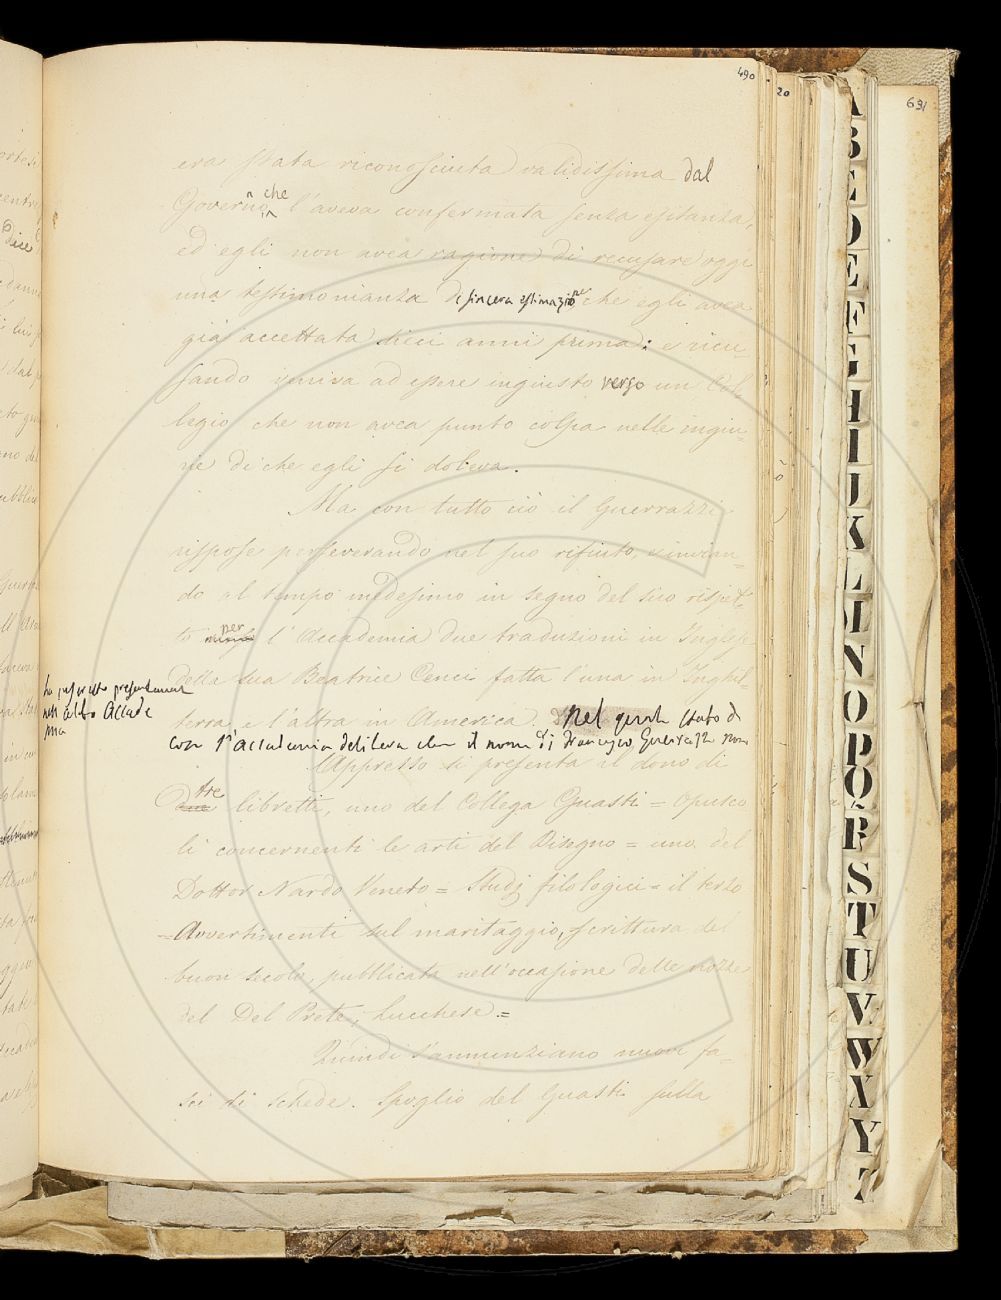 490
era stata riconosciuta validissima dal
Governo, che l'aveva confermata senza esitanza,
ed egli non avea ragione di recusare oggi
una testimonianza di sincera estimazione che egli avea
già accettata dieci anni prima: e ricu-
sando veniva ad essere ingiusto verso un Col-
legio che non avea punto colpa nelle ingiu-
rie di che egli si doleva.
Ma con tutto ciò il Guerrazzi
rispose perseverando nel suo rifiuto, e invian-
do al tempo medesimo in segno del suo rispet-
to per l'Accademia due traduzioni in Inglese
della sua Beatrice Cenci fatta l'una in Inghil-
terra, e l'altra in America. Nel stato di
presentemente
nell'albo Accade
mia
con l'Accademia delibera che il nome di Francesco Guerrazzi non
Appresso si presenta il dono di
tre libretti, uno del Collega Guasti = Opusco
li concernenti le arti del Disegno = uno del
Dottor Nardo Veneto = Studj filologici = il terzo
= Avvertimenti sul maritaggio, scrittura del
buon secolo, pubblicata nell'occasione delle nozze
del Del Prete, Lucchese =
Quindi s'annunziano nuovi fa-
sci di schede. Spoglio del Guasti sulla
20
631
A
B
C
D
E
F
G
H
I
J
K
L
M
N
O
P
Q
R
S
T
U
V
W
X
Y
Z